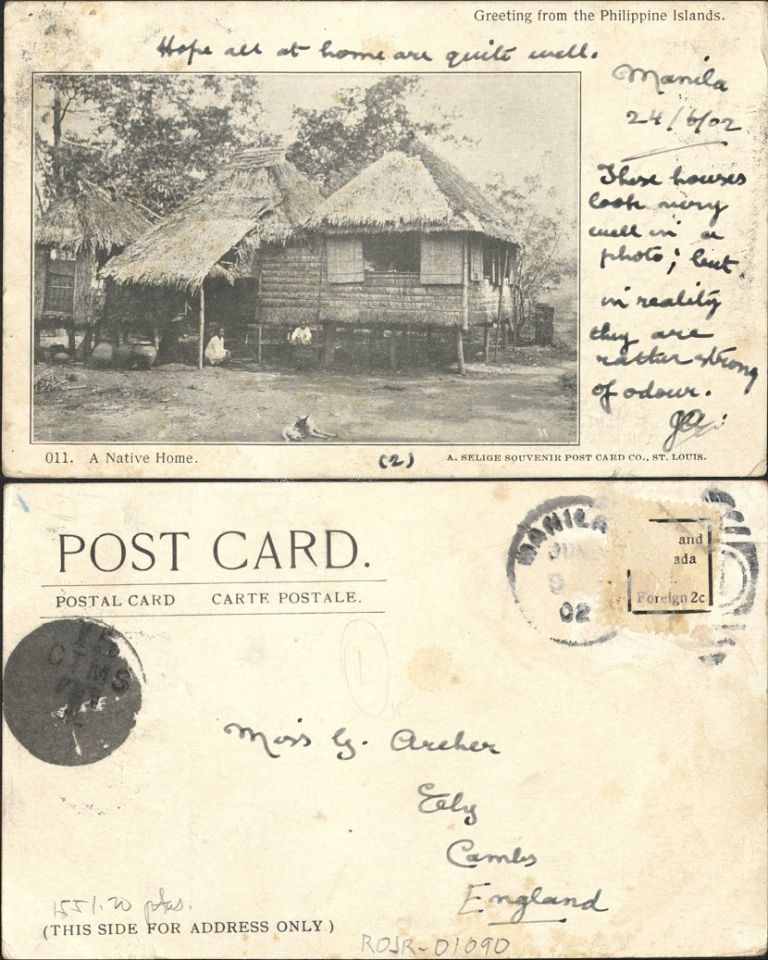 Greeting from the Philippine Islands.
Hope all at home are quite well.
Manila
24/6/02
These houses
look very
well in a
photo; but
in reality
they are
rather strong
of odour.
011. A Native Home.
(2)
A. SELIGE SOUVENIR POST CARD CO., ST. LOUIS.
POST CARD.
POSTAL CARD CARTE POSTALE.
MANILA
JUN
9
02
and
ada
Foreign 2c
Miss G. Archer
Ely
Cambs
England
(THIS SIDE FOR ADDRESS ONLY)
ROJR-01090